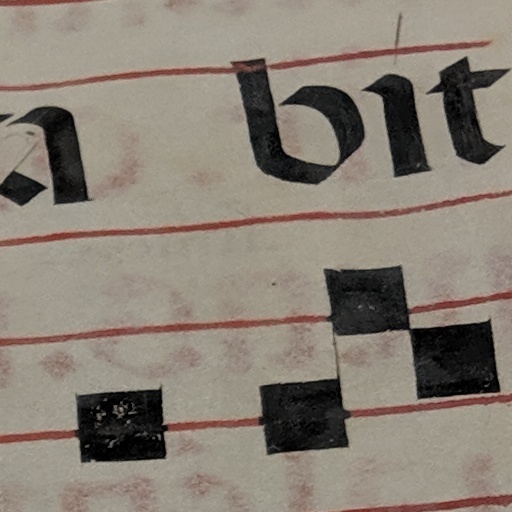 a bit